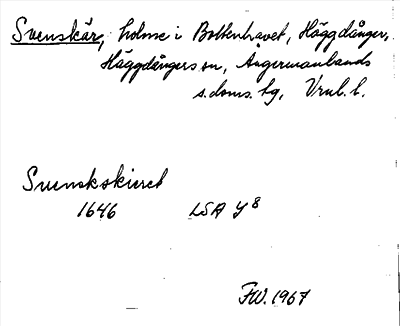 Svenskär, holme i Bottenhavet, Häggdånger,
Häggdångers sn, Ångermanlands
s. doms. tg, Vrnl. l.
Svenskskieret
1646 LSA Y8
FW. 1967